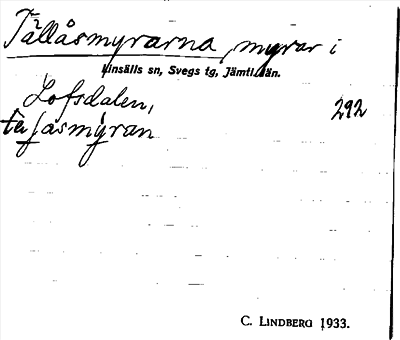 Tällåsmyrarna, myrar i
Linsälls sn, Svegs tg, Jämtl. län.
Lofsdalen,
292
C. LINDBERG 1933.